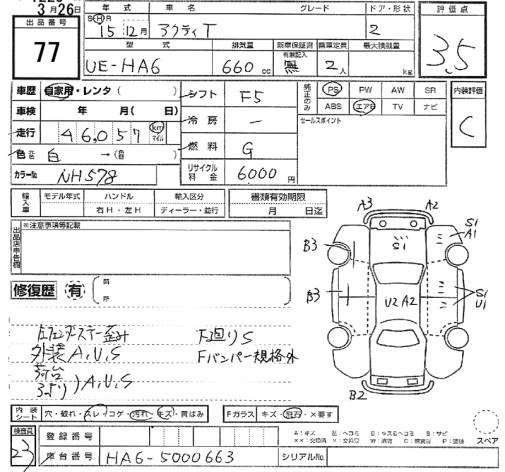 3月26日
出品番号
77
年式 車名 グレード ドア・形状
SⒽR 15年12月 アクティT 2
型式 排気量 新車保証書 乗車定員 最大積載量
有無記入
UE-HA6 660cc 無 2人 kg
評価点
3,5
車歴 自家用・レンタ( )
車検 年 月( 日)
走行 46,057 km マイル
色 元色 白 →(自)
カラーNo NH578
シフト F5
冷房 ー
燃料 G
リサイクル料金 6000円
純正のみ PS PW AW SR
ABS エアB TV ナビ
セールスポイント
内装評価
C
輸入車 モデル年式 ハンドル 輸入区分
年 右H・左H ディーラー・並行
書類有効期限
月 日迄
出品店申告欄 ※注意事項等記載
修復歴 有
前
所
外装A,U,S
荷台
A,U,S
F廻りS
Fバンパー規格外
A3 A2
S1
S1
A1
B3
B3
U2 A2
S1
U1
B2
内装シート 穴・破れ・スレ・コゲ・汚れ・キズ・黄ばみ
Fガラス キズ・飛石・×要す
スペア
検査員
23
登録番号
車台番号 HA6-5000663 シリアルNo.